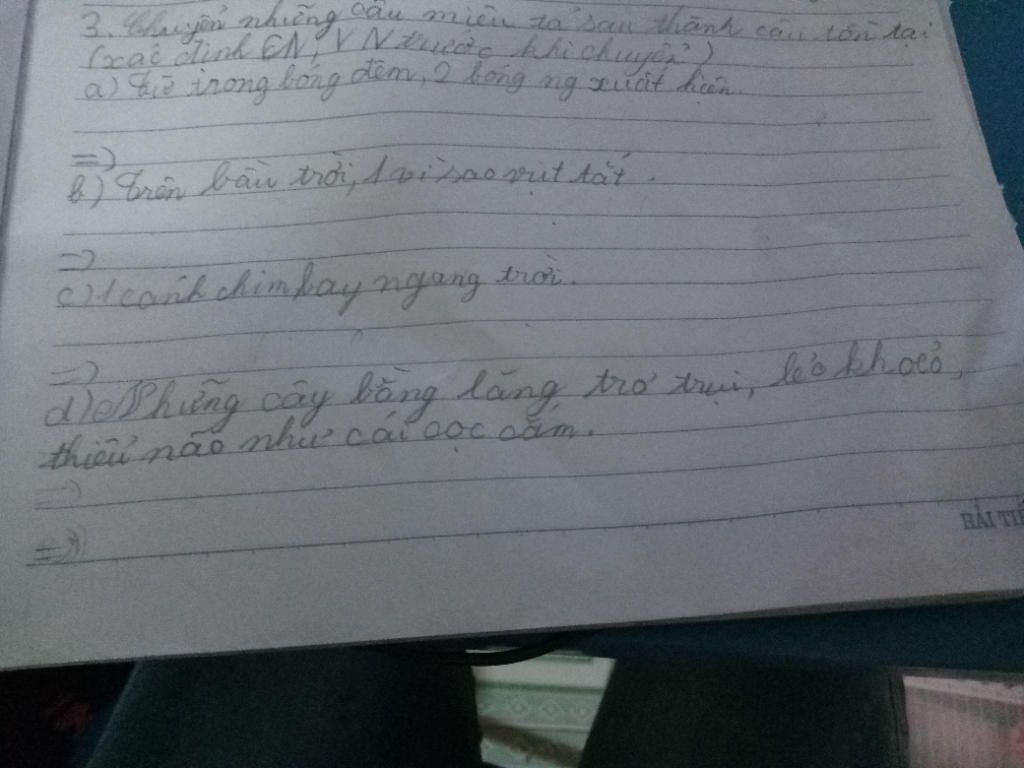 3. Chuyển những câu miêu tả sau thành câu tồn tại
(xác định CN, VN trước khi chuyển)
a) Từ trong bóng đêm, 2 bóng ng xuất hiện.
=>
b) Trên bầu trời, 1 vì sao vụt tắt.
=>
c) 1 cánh chim bay ngang trời.
=>
d) Những cây bằng lăng trơ trụi, lẻo khoẻo,
thiểu não như cái cọc cắm.
=>
=>
BÀI